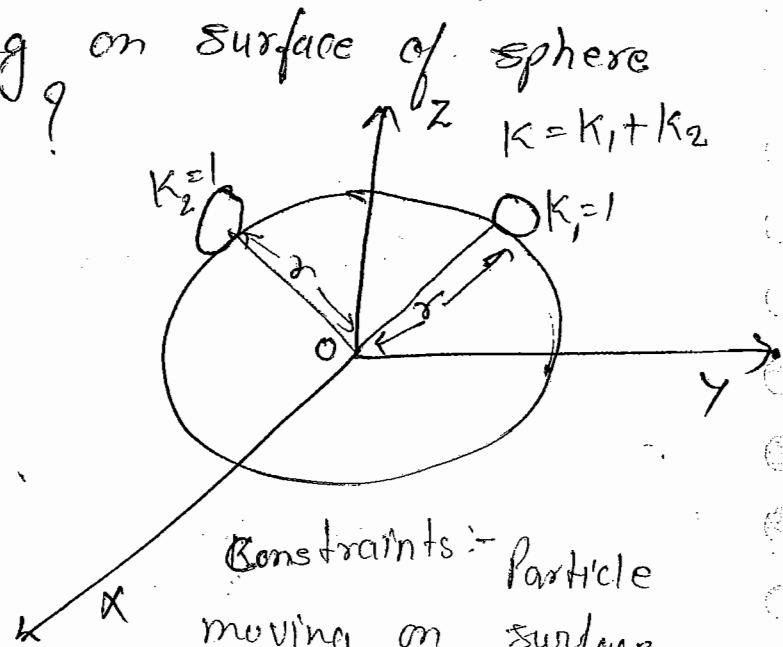 g on surface of sphere
?
Z
K = K₁ + K₂
K₂ = 1
K₁ = 1
r
r
O
Y
X
Constraints :- Particle
moving on surface